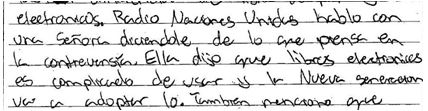 electronicos. Radio Naciones Unidas hablo con
una Señora diciendole de lo que piensa en
la contreversia. Ella dijo que libros electronicos
es complicado de usar y la Nueva generacion
va a adoptar lo. Tambien menciono que